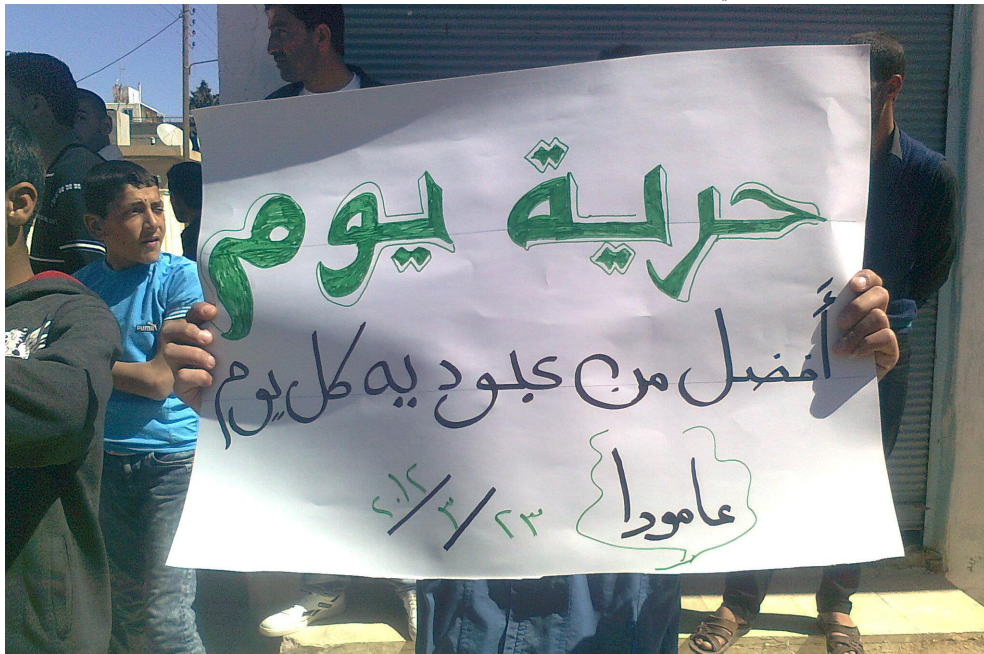 حرية يوم
أفضل من عبوديه كل يوم
عامودا
٢٣/٣/٢٠١٢
PUMA